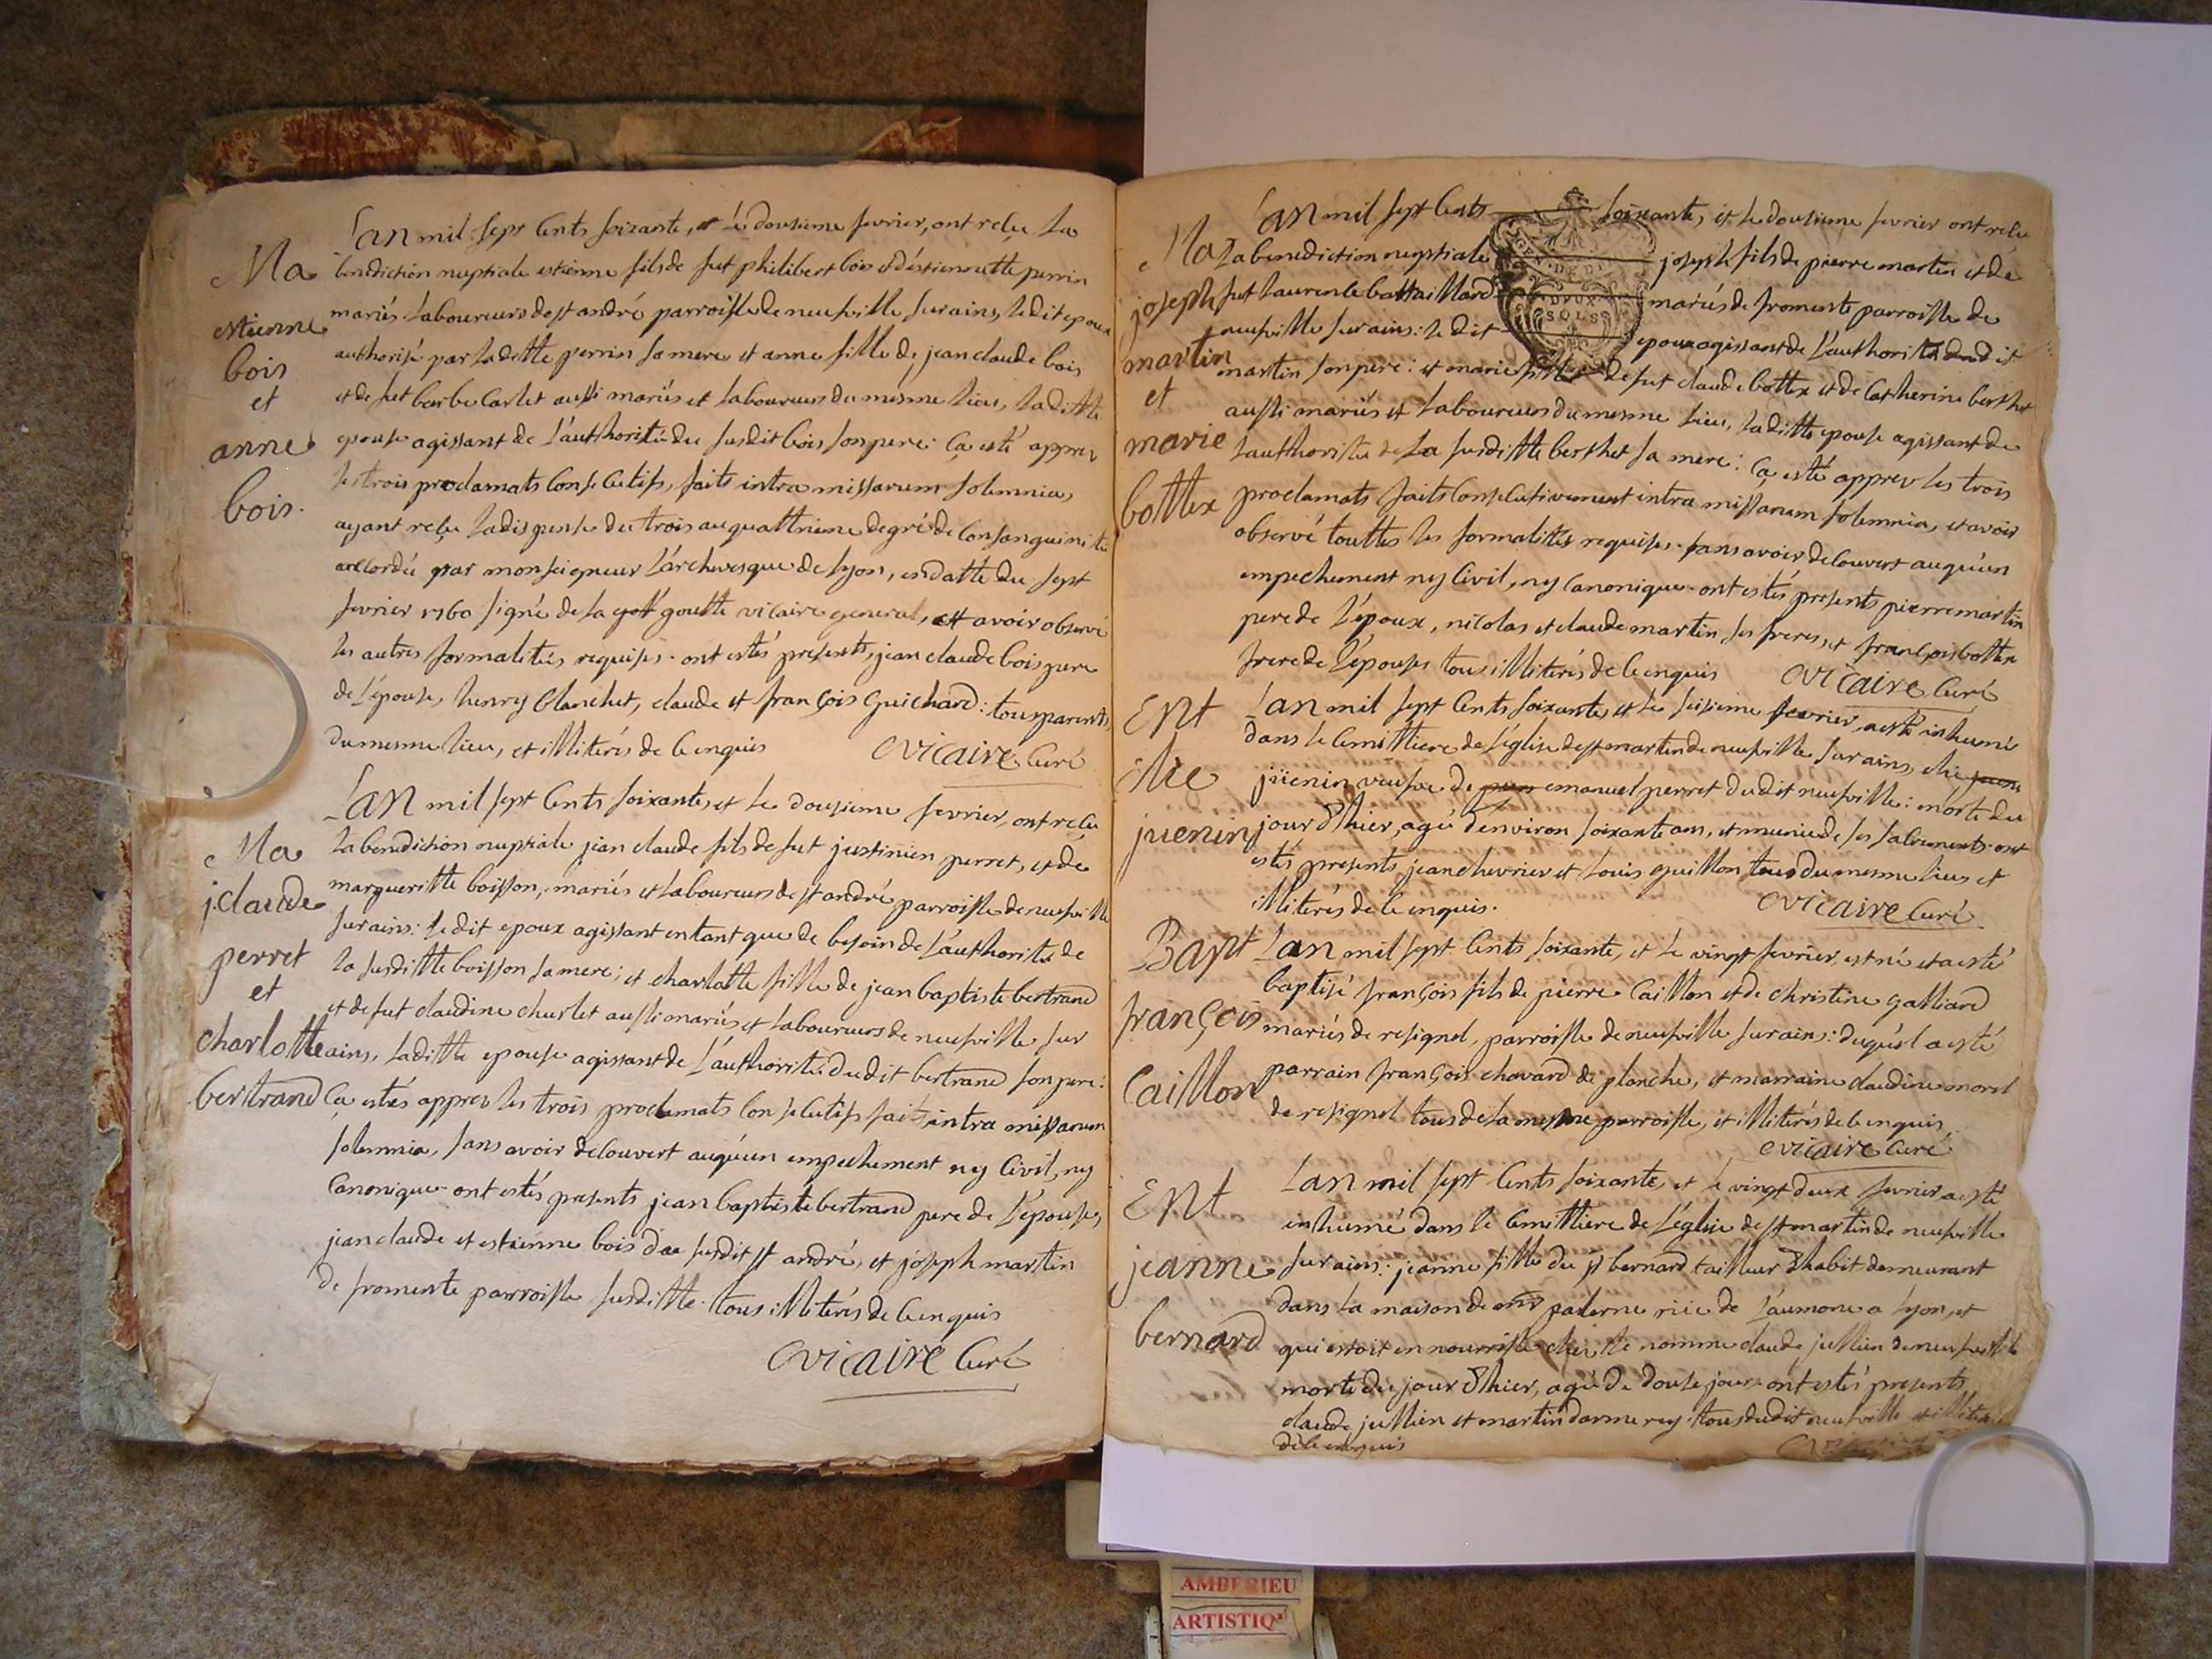 Ma
estienne
bois
et
anne
bois.
Lan mil sept cents soixante, et le dousieme fevrier, ont reçu la
benediction nuptiale estienne fils de fut philibert bois et d'estiennette perrin
mariés laboureurs de st andré parroisse de neufville sur ains, ledit epoux
authorisé par laditte perrin sa mere et anne fille de jean claude bois
et de fut barbe carlet aussi mariés et laboureurs du mesme lieu, laditte
epouse agissant de l'authorité du susdit bois son pere: ça esté apprez
les trois proclamats consecutifs, faits intra missarum solemnia,
ayant reçu la dispense du trois au quattrieme degré de consanguinité
accordée par monseigneur l'archevesque de lyon, en datte du sept
fevrier 1760 signé de la goutte vicaire general, et avoir observé
les autres formalités requises. ont estés presents, jean claude bois pere
de l'epouse, henry blanchet, claude et françois guichard: tous parents,
du mesme lieu, et illiterés de ce enquis
Ovicaire Curé
Ma
j. claude
perret
et
charlotte
bertrand
Lan mil sept cents soixante, et le dousieme fevrier, ont reçu
la benediction nuptiale jean claude fils de fut justinien perret, et de
margueritte boisson, mariés et laboureurs de st andré parroisse de neufville
sur ains: ledit epoux agissant entant que de besoin de l'authorité de
la susditte boisson sa mere; et charlotte fille de jean baptiste bertrand
et de fut claudine churlet aussi mariés et laboureurs de neufville sur
ains, laditte epouse agissant de l'authorité dudit bertrand son pere:
ça estés apprez les trois proclamats consecutifs faits intra missarum
solemnia, sans avoir decouvert auqu'un empechement ny civil, ny
canonique. ont estés presents jean baptiste bertrand pere de l'epouse,
jean claude et estienne bois du susdit st andré, et joseph martin
de fromente parroisse susditte. tous illiterés de ce enquis
Ovicaire Curé
Ma
joseph
martin
et
marie
bottex
Lan mil sept cents soixante, et le dousieme fevrier ont reçu
la benediction nuptiale joseph fils de pierre martin et de
fut laurence battaillard mariés de fromente parroisse de
neufville sur ains: le dit epoux agissant de l'authorité dudit
martin son pere: et marie fille de fut claude bottex et de catherine berthet
aussi mariés et laboureurs du mesme lieu, laditte epouse agissant de
l'authorité de la susditte berthet sa mere: ça esté apprez les trois
proclamats faits consecutivement intra missarum solemnia, et avoir
observé touttes les formalités requises. sans avoir decouvert auqu'un
empechement ny civil, ny canonique. ont estés presents pierre martin
pere de l'epoux, nicolas et claude martin ses freres, et françois bottex
frere de l'epouse, tous illiterés de ce enquis
Ovicaire Curé
DEUX
SOLS
Ent
elie
juenin
Lan mil sept cents soixante, et le seisieme fevrier a esté inhumé
dans le cemittiere de l'église de st martin de neufville sur ains, elie
juenin veufve de emanuel perret dudit neufville: morte du
jour d'hier, agée d'environ soixante ans, et munie de ses sacrements. ont
estés presents jean chevrier et louis guillon tous du mesme lieu et
illiterés de ce enquis.
Ovicaire Curé
Bapt
françois
Caillon
Lan mil sept cents soixante, et le vingt fevrier, est né et a esté
baptisé françois fils de pierre Caillon et de christine galliard
mariés de resignel, parroisse de neufville sur ains: duquel a esté
parrain françois chavard de planche, et marraine claudine morel
de resignel tous de la mesme parroisse, et illiterés de ce enquis
Ovicaire Curé
Ent
jeanne
bernard
Lan mil sept cents soixante, et le vingt deux fevrier a esté
inhumé dans le cemittiere de l'église de st martin de neufville
sur ains: jeanne fille du sr bernard tailleur d'habit demeurant
dans la maison de paterne rüe de l'aumone a lyon, et
qui estoit en nourrisse chez le nommé claude jullien de neufville
morte du jour d'hier, agée de douse jours. ont estés presents
claude jullien et martin darmerey. tous dudit neufville et
de ce enquis
AMBERIEU
ARTISTIQ